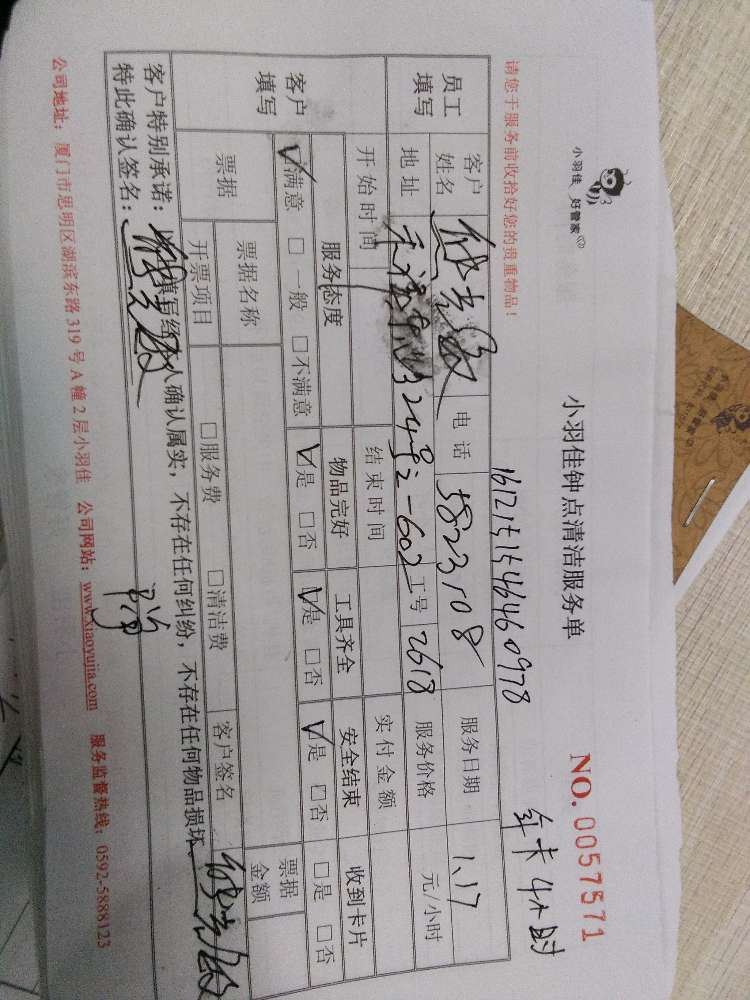 小羽佳 好管家
小羽佳钟点清洁服务单
NO. 0057571
年卡4小时
161215154646 0978
请您于服务前收拾好您的贵重物品!
员工填写
客户姓名 电话 5823108 服务日期 1.17
地址 324号2-602 工号 2618 服务价格 元/小时
开始时间 结束时间 实付金额
客户填写
服务态度 物品完好 工具齐全 安全结束 收到卡片
☑满意 □一般 □不满意 ☑是 □否 ☑是 □否 ☑是 □否 □是 □否
票据 票据名称 票据金额
开票项目 □服务费 □清洁费 客户签名
客户特别承诺:以上填写经本人确认属实,不存在任何纠纷,不存在任何物品损坏
特此确认签名:
公司地址:厦门市思明区湖滨东路319号A幢2层小羽佳 公司网站:www.xiaoyujia.com 服务监督热线:0592-5888123